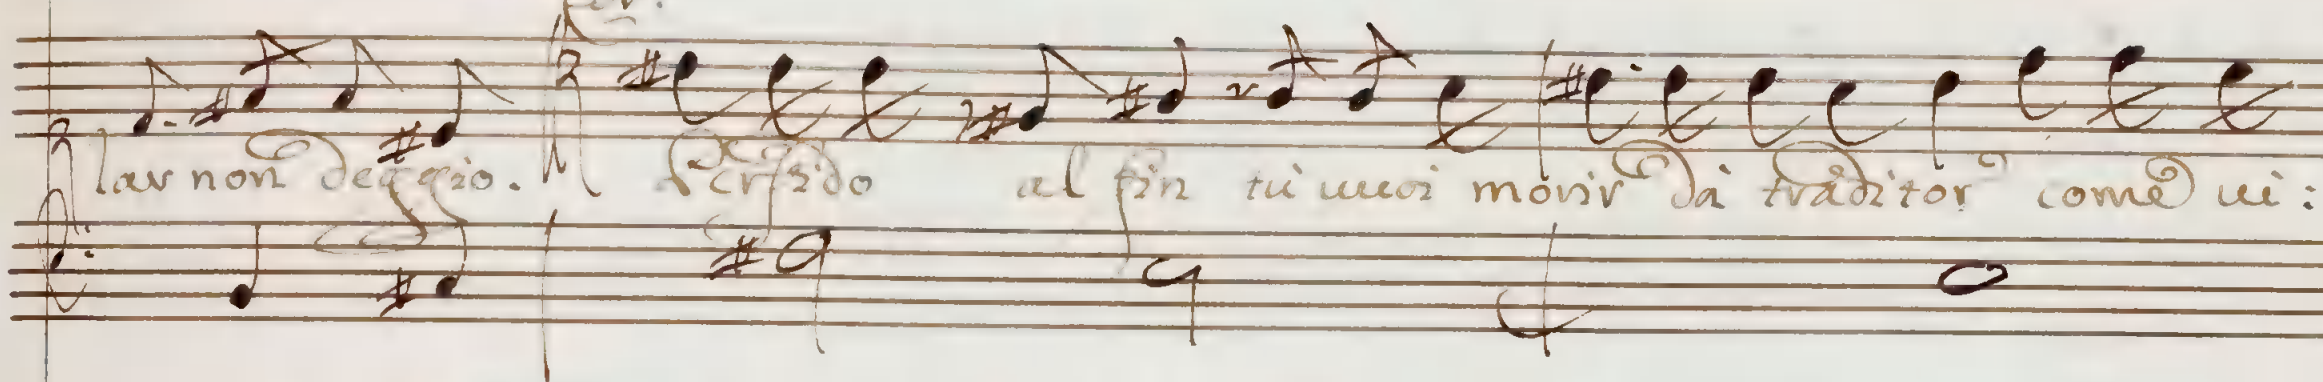 lar non deggio. Perfido al fin tu vuoi morir da traditor come vi: